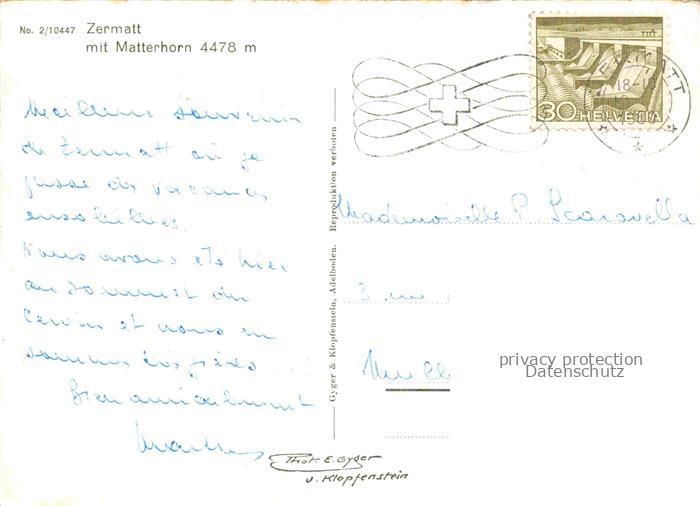 No. 2/10447 Zermatt
mit Matterhorn 4478 m
Meilleur souvenir
de Zermatt où je
passe des vacances
ensoleillées.
Nous avons été hier
au sommet du
Cervin et nous en
sommes
Bien amicalement
Reproduktion verboten
Gyger & Klopfenstein, Adelboden.
ZERMATT
18-
30 HELVETIA
Mademoiselle P. Scaravella
3 rue
privacy protection
Datenschutz
Phot. E. Gyger
u. Klopfenstein